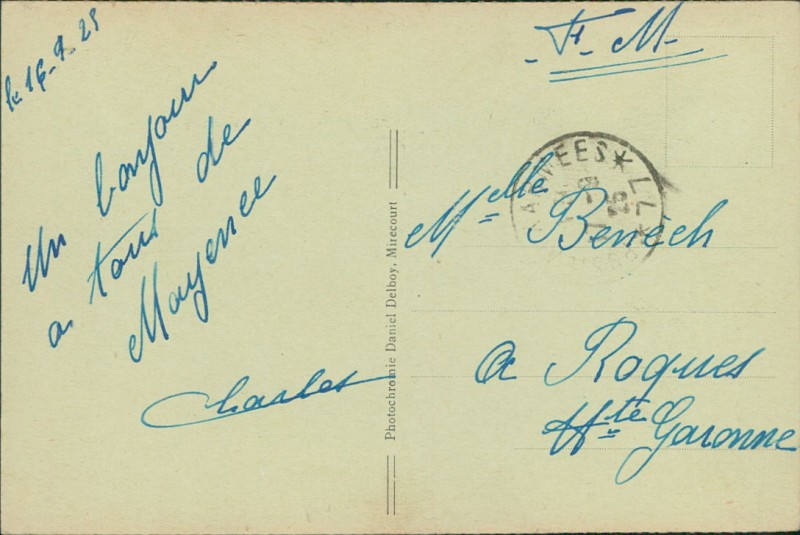 le 16-9-25
Un bonjour
a tous de
Mayence
Charles
Photochromie Daniel Delboy, Mirecourt
- F - M -
ARMEES * 77 *
Mlle Benèch
a Roques
Hte Garonne